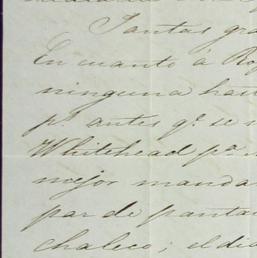 Tantas gra
En cuanto á Ro
ninguna has
pª antes qe. se
Whitehead pª
mejor manda
par de panta
chaleco; el dia